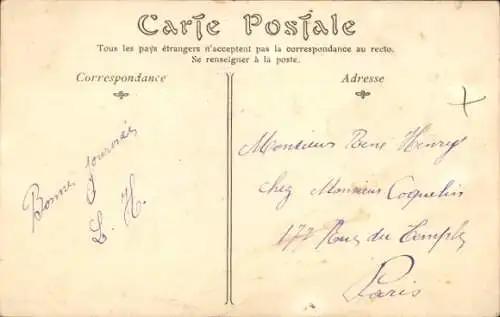 Carte Postale
Tous les pays étrangers n'acceptent pas la correspondance au recto.
Se renseigner à la poste.
Correspondance
Adresse
Bonne journée
L. H.
Monsieur René Henry
chez Monsieur Coquelin
177 Rue du Temple
Paris